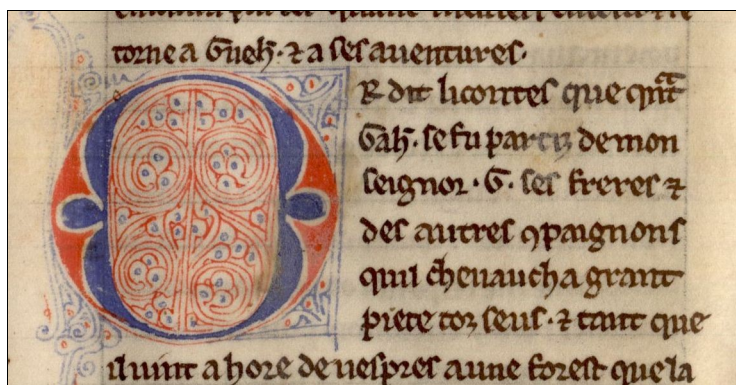 torne a Gueh̄. ⁊ a ses auentures.
OR dit li contes que qͥnt
Gah̄. se fu partiz de mon
seignor. G. ses freres ⁊
des autres ꝯpaignons
quil cheuaucha grant
piece toz seus. ⁊ tant que
il uint a hore de uespres a une forest que la